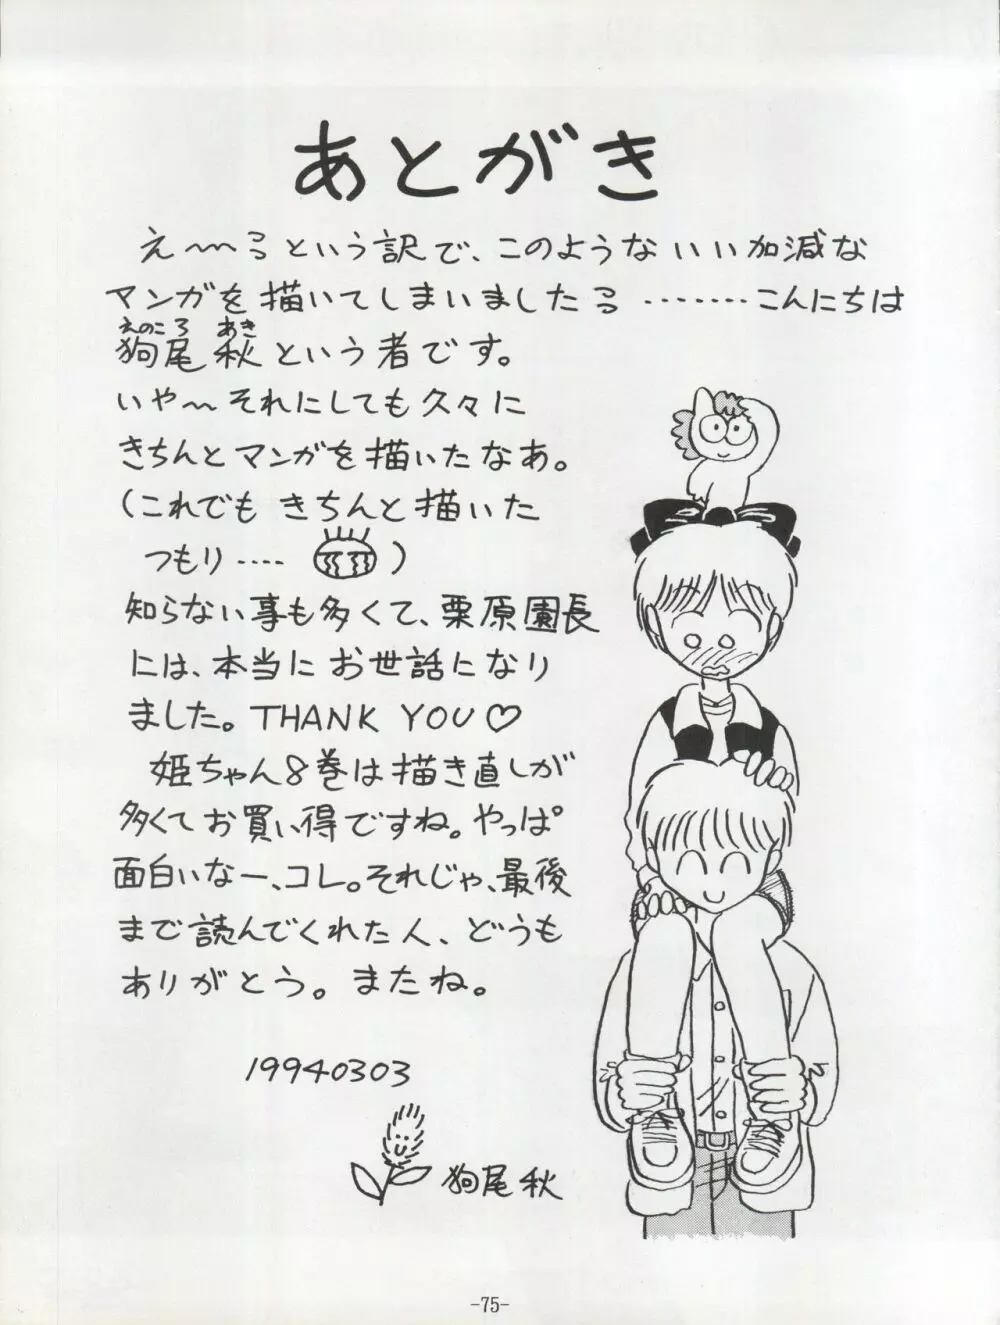 あとがき
え〜〜っという訳で、このようないい加減な
マンガを描いてしまいましたっ………こんにちは
えのころ あき
狗尾 秋という者です。
いや〜それにしても久々に
きちんとマンガを描いたなあ。
(これでも きちんと描いた
つもり…‥ )
知らない事も多くて、栗原園長
には、本当にお世話になり
ました。THANK YOU♡
姫ちゃん8巻は描き直しが
多くてお買い得ですね。やっぱ
面白いなー、コレ。それじゃ、最後
まで読んでくれた人、どうも
ありがとう。またね。
19940303
狗尾 秋
-75-